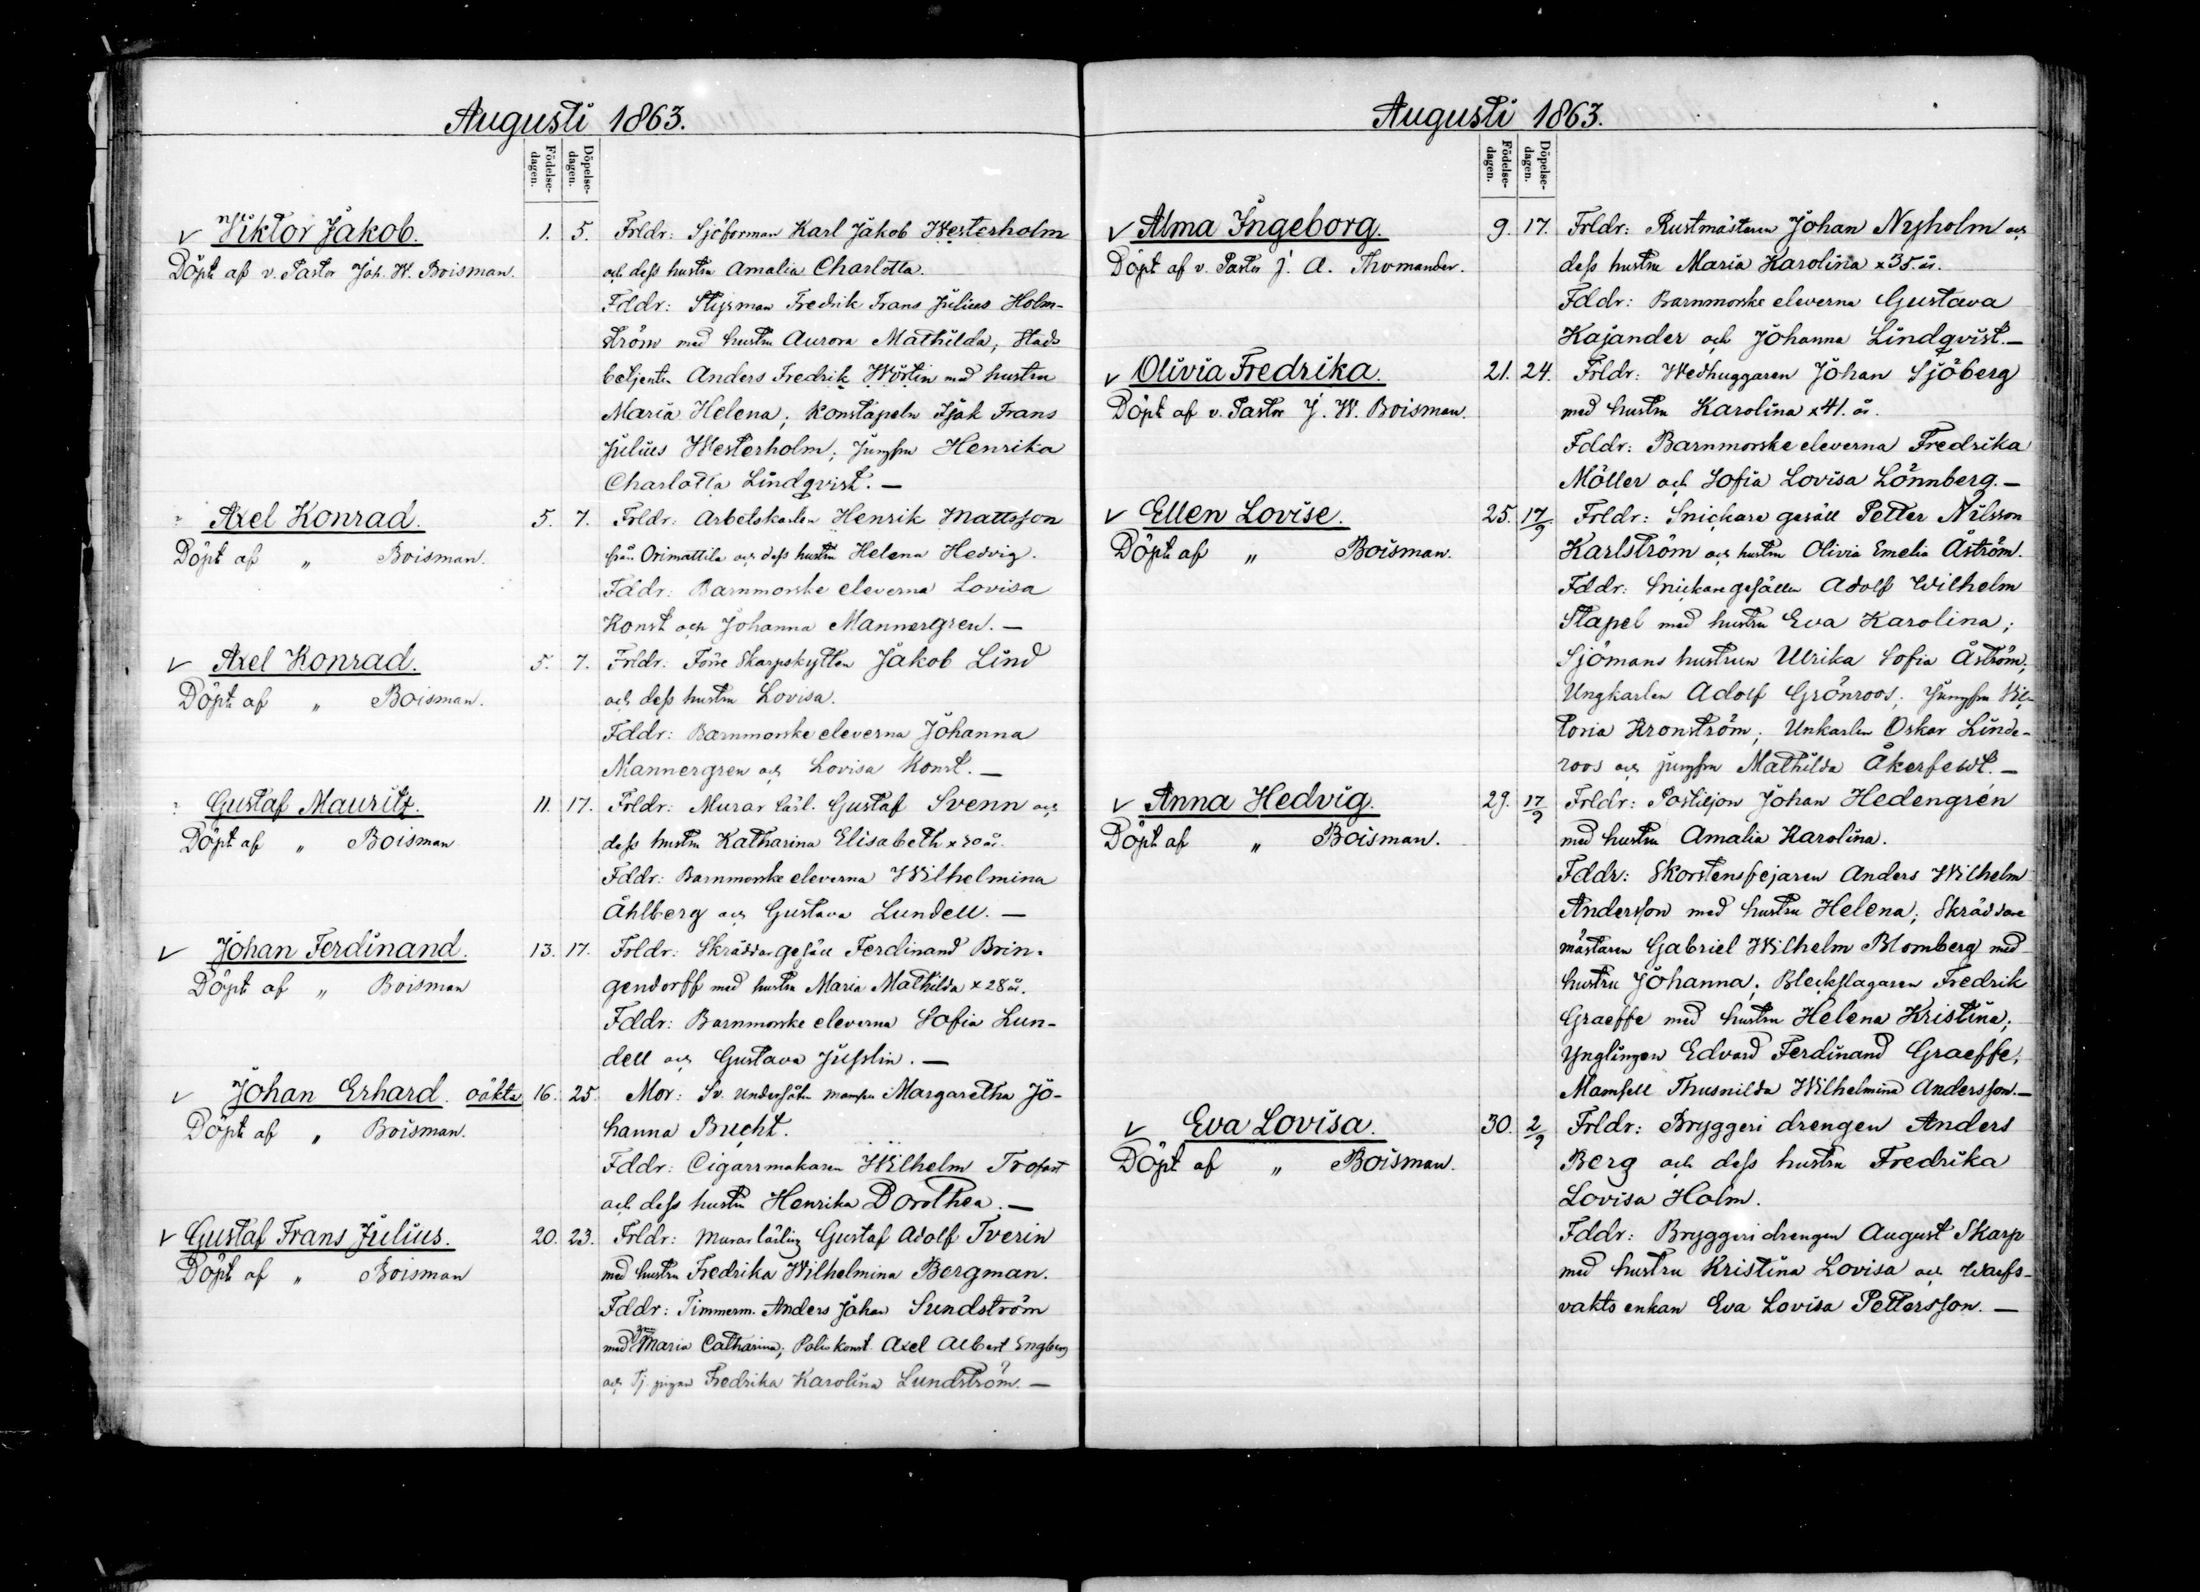 Augusti 1863.
Födelse-dagen.
Döpelse-dagen.
Viktor Jakob. 1. 5. Frldr: Sjöforman Karl Jakob Westerholm
Döpt af v. Pastor Joh. W. Boisman. och dess hustru Amalia Charlotta.
Fddr: Styrman Fredrik Frans Julius Holm-
ström med hustru Aurora Mathilda, Stads
betjenten Anders Fredrik Wörtin med hustru
Maria Helena; Konstapeln Isak Frans
Julius Westerholm; Jungfru Henrika
Charlotta Lindqvist. —
Axel Konrad. 5. 7. Frldr: Arbetskarlen Henrik Mattsson
Döpt af „ Boisman. från Orimattila och dess hustru Helena Hedvig.
Fddr: Barnmorske eleverna Lovisa
Konst och Johanna Mannergren. —
Axel Konrad. 5. 7. Frldr: Förre Skarpskytten Jakob Lind
Döpt af „ Boisman. och dess hustru Lovisa.
Fddr: Barnmorske eleverna Johanna
Mannergren och Lovisa Konst. —
Gustaf Mauritz. 11. 17. Frldr: Murar lärl. Gustaf Svenn och
Döpt af „ Boisman dess hustru Katharina Elisabeth x 30 år.
Fddr: Barnmorske eleverna Wilhelmina
Åhlberg och Gustava Lundell. —
Johan Ferdinand. 13. 17. Frldr: Skräddar gesäll Ferdinand Brin-
Döpt af „ Boisman gendorff med hustru Maria Mathilda x 28 år.
Fddr: Barnmorske eleverna Sofia Lun-
dell och Gustava Jusslin. —
Johan Erhard. oäkta 16. 25. Mor: Sv. undersåten mamsen Margaretha Jo-
Döpt af „ Boisman. hanna Bucht.
Fddr: Cigarrmakaren Wilhelm Trofast
och dess hustru Henrika Dorothea. —
Gustaf Frans Julius. 20. 23. Frldr: Murar lärling Gustaf Adolf Tverin
Döpt af „ Boisman med hustru Fredrika Wilhelmina Bergman.
Fddr: Timmerm. Anders Johan Sundström
med Maria Catharina; Polis konst. Axel Albert Engberg
och Tj. pigan Fredrika Karolina Lundström. —
Augusti 1863.
Födelse-dagen.
Döpelse-dagen.
Alma Ingeborg. 9. 17. Frldr: Rustmästaren Johan Nyholm och
Döpt af v. Pastor J. A. Thomander. dess hustru Maria Karolina x 35. år.
Fddr: Barnmorske eleverna Gustava
Kajander och Johanna Lindqvist. —
Olivia Fredrika. 21. 24. Frldr: Wedhuggaren Johan Sjöberg
Döpt af v. Pastor J. W. Boisman. med hustru Karolina x 41. år.
Fddr: Barnmorske eleverna Fredrika
Möller och Sofia Lovisa Lönnberg. —
Ellen Lovise. 25. 17/9 Frldr: Snickare gesäll Petter Nilsson
Döpt af „ Boisman. Karlström och hustru Olivia Emelia Åström.
Fddr: Snickare gesällen Adolf Wilhelm
Stapel med hustru Eva Karolina;
Sjömans hustrun Ulrika Sofia Åström;
Ungkarlen Adolf Grönroos; Jungfru Vik-
toria Kronström; Unkarlen Oskar Linde-
roos och jungfru Mathilda Åkerfeldt. —
Anna Hedvig. 29. 17/9 Frldr: Postiljon Johan Hedengrén
Döpt af „ Boisman. med hustru Amalia Karolina.
Fddr: Skorstensfejaren Anders Wilhelm
Andersson med hustru Helena; Skräddare
mästaren Gabriel Wilhelm Blomberg med
hustru Johanna; Bleckslagaren Fredrik
Graeffe med hustru Helena Kristina;
Ynglingen Edvard Ferdinand Graeffe;
Mamsell Thusnilda Wilhelmina Andersson. —
Eva Lovisa. 30. 2/9 Frldr: Bryggeri drengen Anders
Döpt af „ Boisman. Berg och dess hustru Fredrika
Lovisa Holm.
Fddr: Bryggeri drengen August Skarp
med hustru Kristina Lovisa och Warfs-
vakts enkan Eva Lovisa Pettersson. —